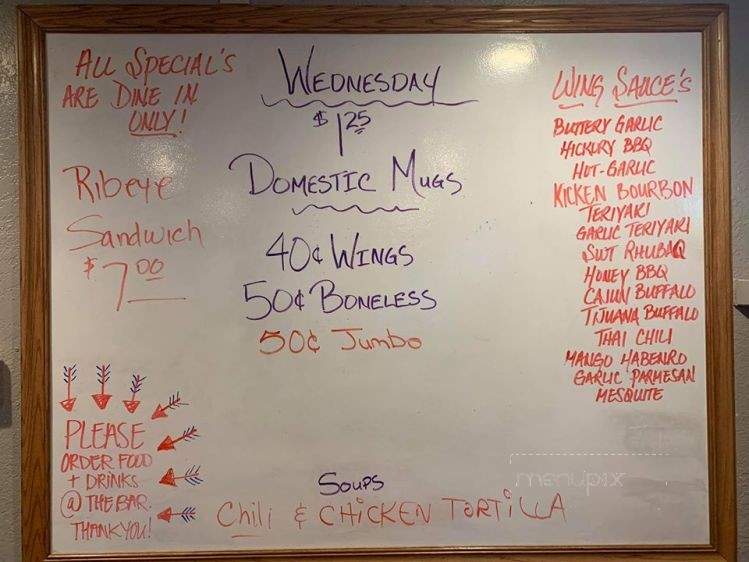 ALL SPECIAL'S
ARE DINE IN
ONLY!
Ribeye
Sandwich
$7.00
PLEASE
ORDER FOOD
+ DRINKS
@ THE BAR.
THANK YOU!
WEDNESDAY
$1.25
DOMESTIC MUGS
40¢ WINGS
50¢ BONELESS
50¢ Jumbo
SOUPS
Chili & CHiCKEN TORTiLLA
WING SAUCE'S
BUTTERY GARLIC
HICKORY BBQ
HOT-GARLIC
KICKEN BOURBON
TERIYAKI
GARLIC TERIYAKI
SWT RHUBAQ
HONEY BBQ
CAJUN BUFFALO
TIJUANA BUFFALO
THAI CHILI
MANGO HABENRO
GARLIC PARMESAN
MESQUITE
menupix